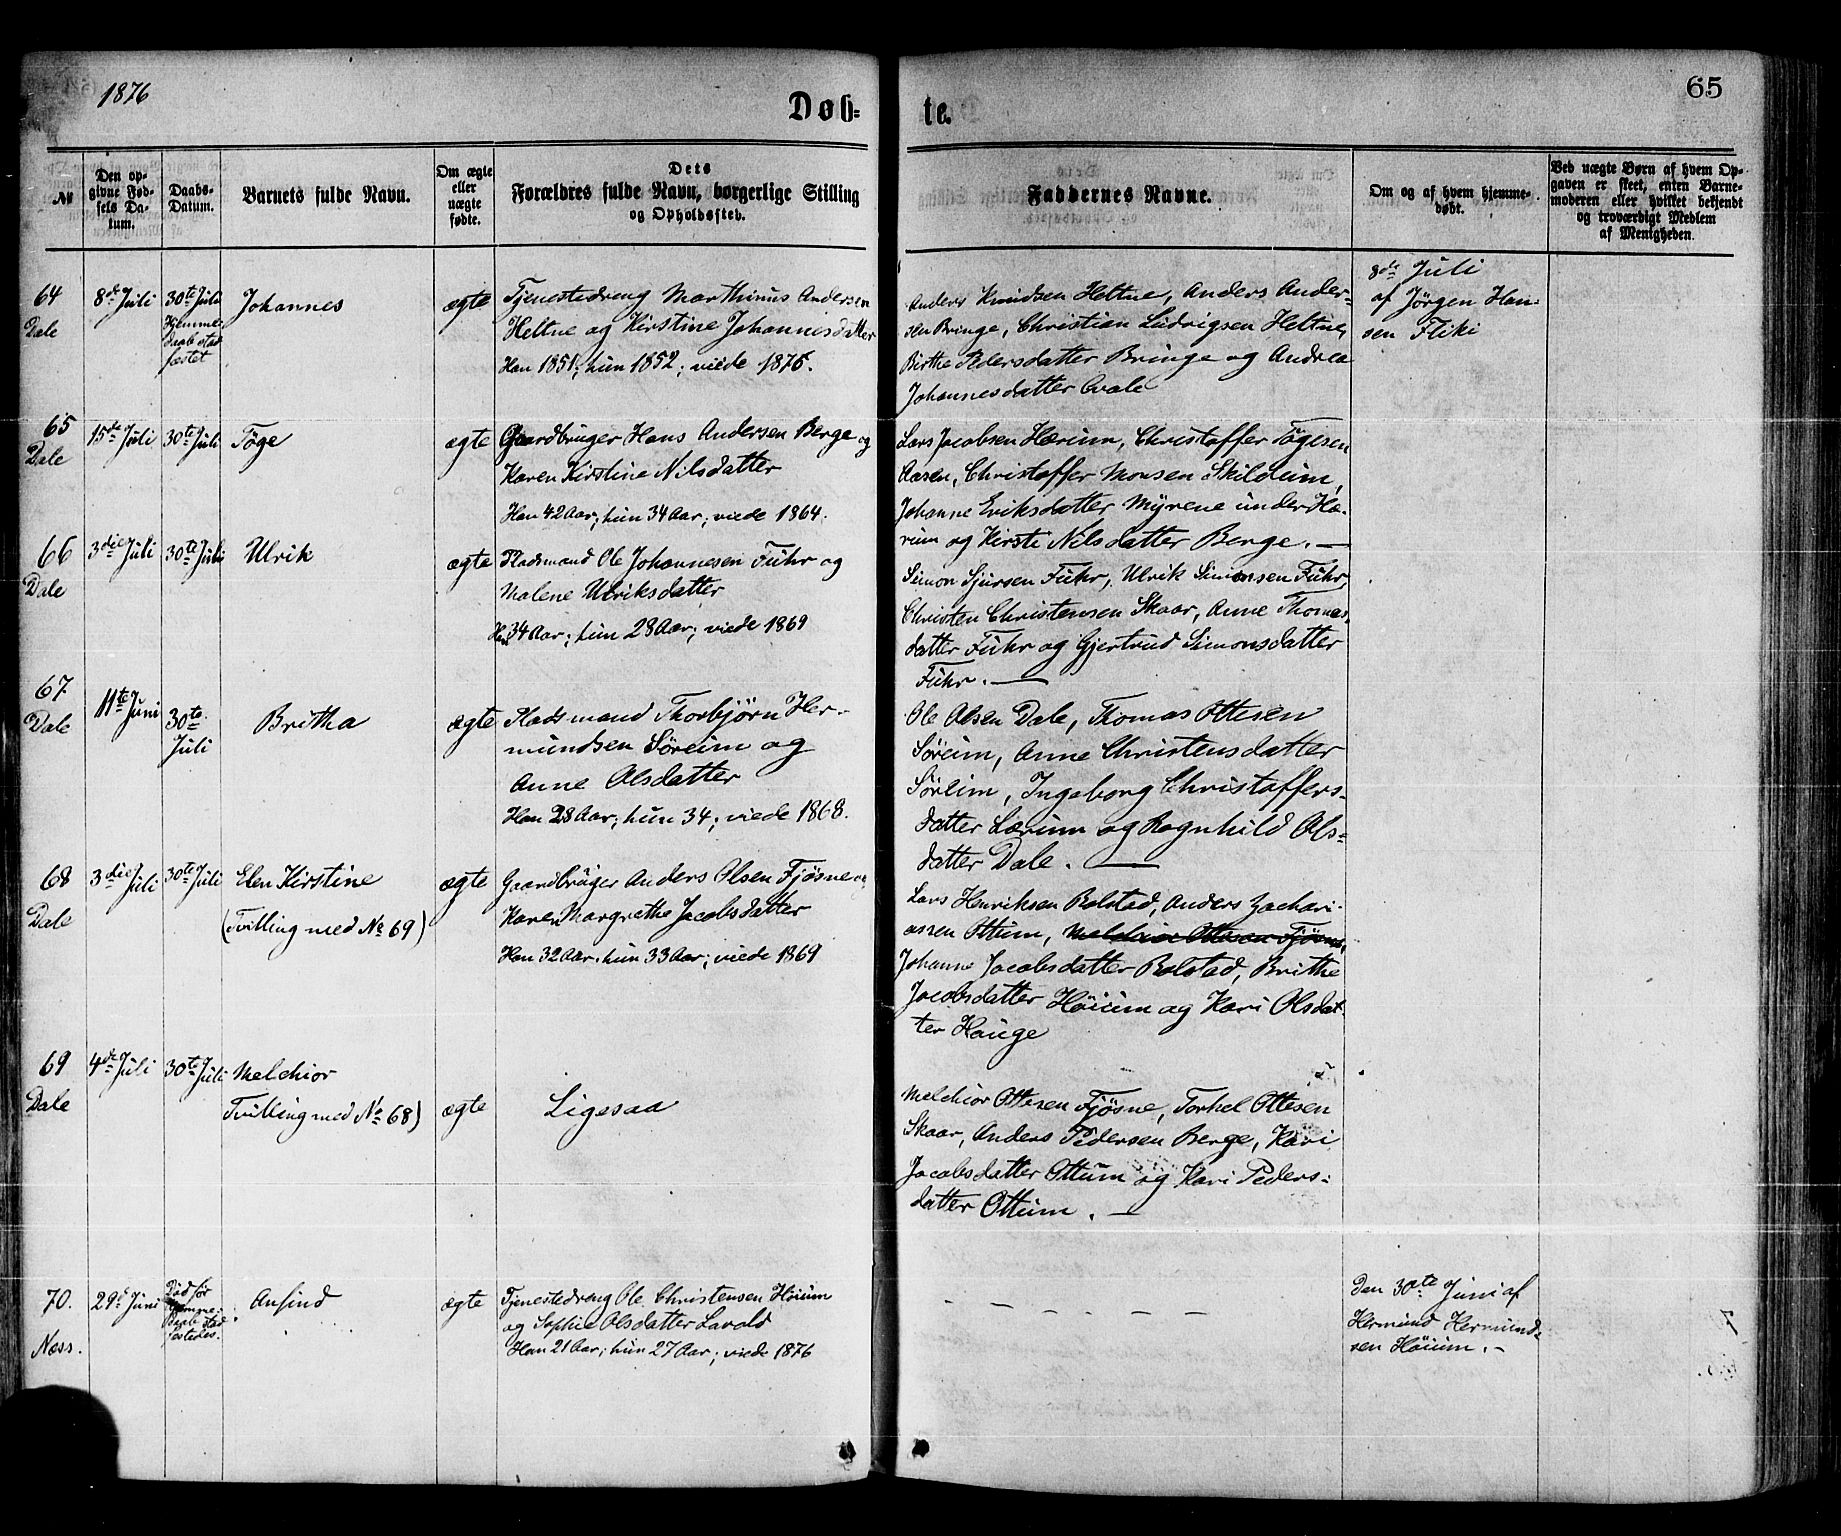 1876
65
Døb-
te.
№
Den op-
givne Fød-
sels Da-
tum.
Daabs-
Datum.
Barnets fulde Navn.
Om ægte
eller
uægte
fødte.
Dets
Forældres fulde Navn, borgerlige Stilling
og Opholdssted.
Faddernes Navne.
Om og af hvem hjemme-
døbt.
Ved uægte Børn af hvem Op-
gaven er skeet, enten Barne-
moderen eller hvilket bekjendt
og troværdigt Medlem
af Menigheden.
64
Dale
8de Juli
30te Juli
Hjemme-
daab stad-
fæstet
Johannes
ægte
Tjenestedreng Marthinus Andersen
Heltne og Kirstine Johannisdatter
Han 1851; hun 1852; viede 1875.
Anders Knudsen Heltne, Anders Ander-
sen Bringe, Christian Ludvigsen Heltne,
Birthe Pedersdatter Bringe og Andrea
Johannesdatter Qvale
8de Juli
af Jørgen Han-
sen Fliki
65
Dale
15de Juli
30te Juli
Tøge
ægte
Gaardbruger Hans Andersen Berge og
Karen Kirstine Nilsdatter
Han 42 Aar; hun 34 Aar; viede 1864.
Lars Jacobsen Hærum, Christoffer Tøgesen
Aasen, Christoffer Monsen Skildum,
Johanne Eriksdatter Myrene under Hæ-
rum og Kirsti Nilsdatter Berge. —
66
Dale
3die Juli
30te Juli
Ulrik
ægte
Pladsmand Ole Johannesen Fuhr og
Malene Ulriksdatter
Han 34 Aar; hun 28 Aar; viede 1869
Simon Sjursen Fuhr, Ulrik Simonsen Fuhr,
Christen Christensen Skaar, Anne Thomas-
datter Fuhr og Gjertrud Simonsdatter
Fuhr. —
67
Dale
11te Juni
30te
Juli
Britha
ægte
Pladsmand Thorbjørn Her-
mundsen Søreim og
Anne Olsdatter
Han 28 Aar; hun 34; viede 1868.
Ole Olsen Dale, Thomas Ottesen
Søreim, Anne Christensdatter
Søreim, Ingeborg Christoffers-
datter Lærum og Ragnhild Ols-
datter Dale. —
68
Dale
3die Juli
30te Juli
Elen Kirstine
(Tvilling med № 69)
ægte
Gaardbruger Anders Olsen Fjøsne og
Karen Margrethe Jacobsdatter
Han 32 Aar. hun 33 Aar; viede 1869
Lars Henriksen Bolstad, Anders Zachari-
assen Ottum, Melchior Ottesen Fjøsne,
Johanne Jacobsdatter Bolstad, Brithe
Jacobsdatter Høium og Kari Olsdat-
ter Hauge
69
Dale
4de Juli
30te Juli
Melchior
Tvilling med № 68)
ægte
Ligesaa
Melchior Ottesen Fjøsne, Torkel Ottesen
Skaar, Anders Pedersen Berge, Kari
Jacobsdatter Ottum og Kari Peders-
datter Ottum. —
70.
Næss.
29de Juni
Død før
Hjemme-
Daab stad-
fæstedes.
Ansind
ægte
Tjenestedreng Ole Christensen Høium
og Sophie Olsdatter Lavold
Han 21 Aar; hun 27 Aar; viede 1876
— — — — — —
Den 30te Juni af
Hermund Hermund-
sen Høium. —